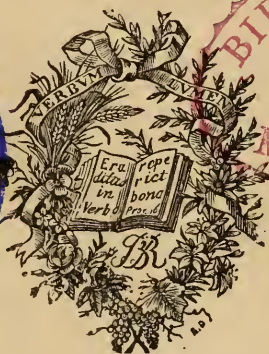 VERBVM LVMEN
Eru
ditus
in
Verbo
repe
riet
bona
Prov.
BI